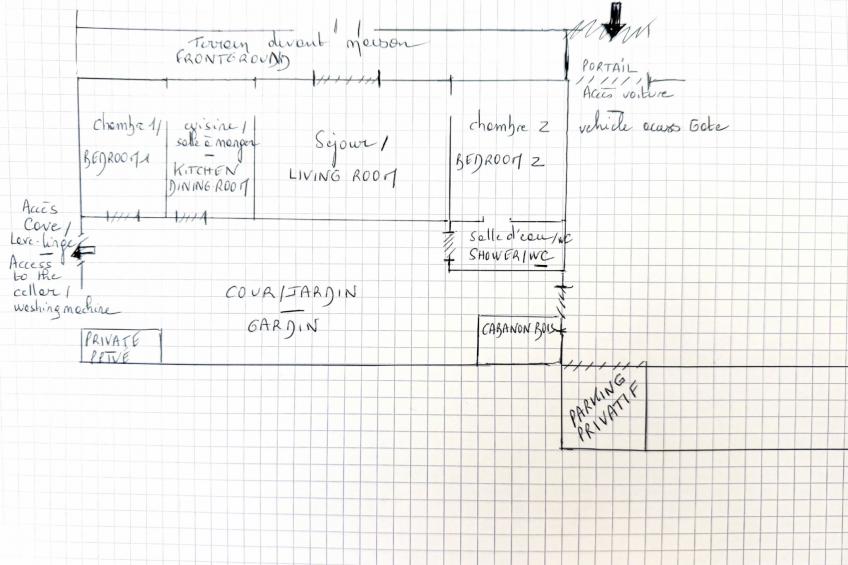 Terrain devant maison
FRONTGROUND
PORTAIL
Accès voiture
vehicle acces Gate
chambre 1/
BEDROOM 1
cuisine/
salle à manger
—
KITCHEN
DINING-ROOM
Séjour/
LIVING ROOM
chambre 2
BEDROOM 2
Accès
Cave/
Lave-linge
—
Access
to the
cellar/
washing machine
salle d'eau/WC
SHOWER/WC
COUR/JARDIN
—
GARDIN
PRIVATE
PRIVE
CABANON BOIS
PARKING
PRIVATIF